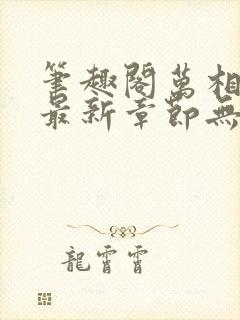 筆趣閣萬相
最新章節無
龍霄霄